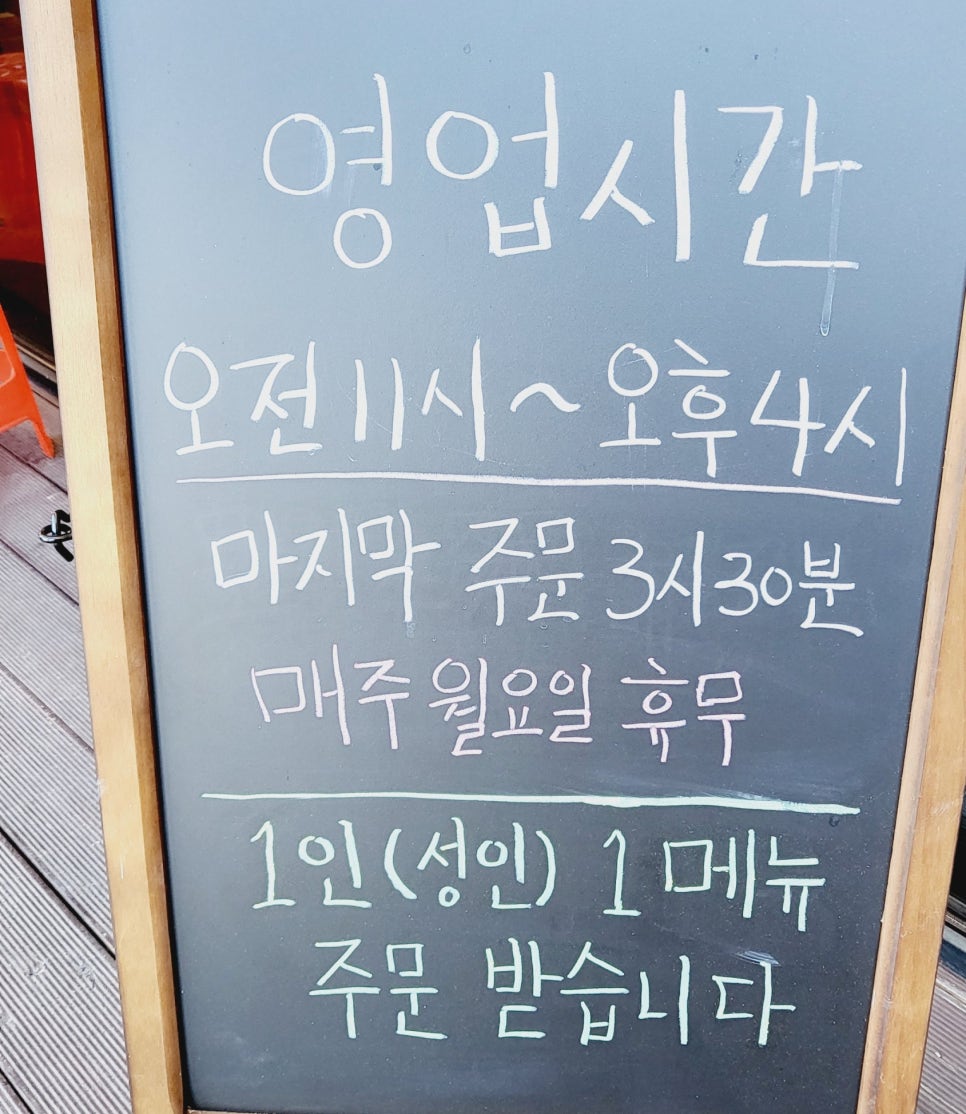 영업시간
오전 11시~오후4시
마지막 주문 3시30분
매주 월요일 휴무
1인(성인) 1 메뉴
주문 받습니다